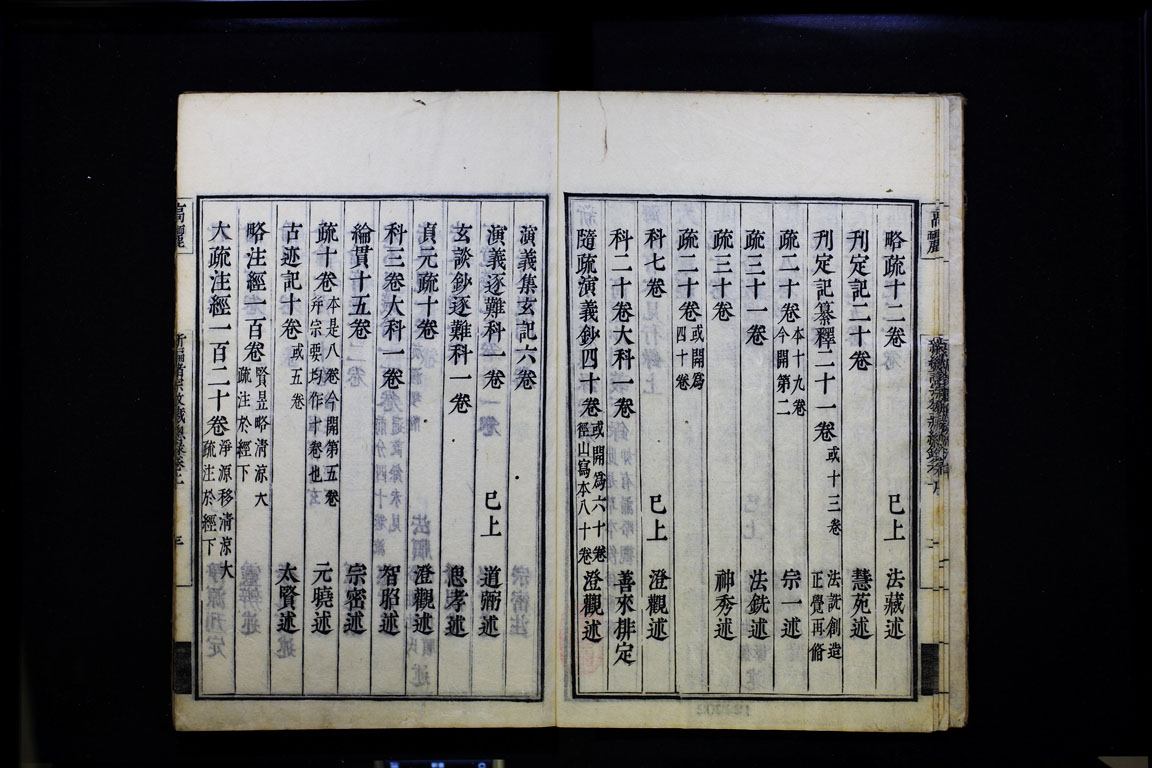 略疏十二卷 已上 法藏述
刊定記二十卷 慧苑述
刊定記纂釋二十一卷 或十三卷 法詵創造 正覺再脩
疏二十卷 本十九卷 今開第二 宗一述
疏三十一卷 法銑述
疏三十卷 神秀述
疏二十卷 或開爲 四十卷
科七卷 已上 澄觀述
科二十卷大科一卷 善來排定
隨疏演義鈔四十卷 或開爲六十卷 徑山寫本八十卷 澄觀述
演義集玄記六卷
演義逐難科一卷 已上 道弼述
玄談鈔逐難科一卷 思孝述
貞元疏十卷 澄觀述
科三卷大科一卷 智照述
綸貫十五卷 宗密述
疏十卷 本是八卷今開第五卷 幷宗要均作十卷也 元曉述
古迹記十卷 或五卷 太賢述
略注經一百卷 賢昱略淸涼大 疏注於經下
大疏注經一百二十卷 淨源移淸涼大 疏注於經下
高麗